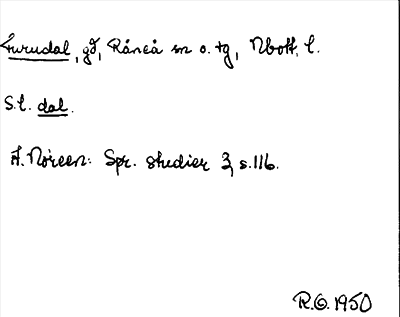 Furudal, gd, Råneå sn o. tg, Nbott. l.
S.l. dal.
A. Noreen: Spr. studier 3, s. 116.
R.G. 1950